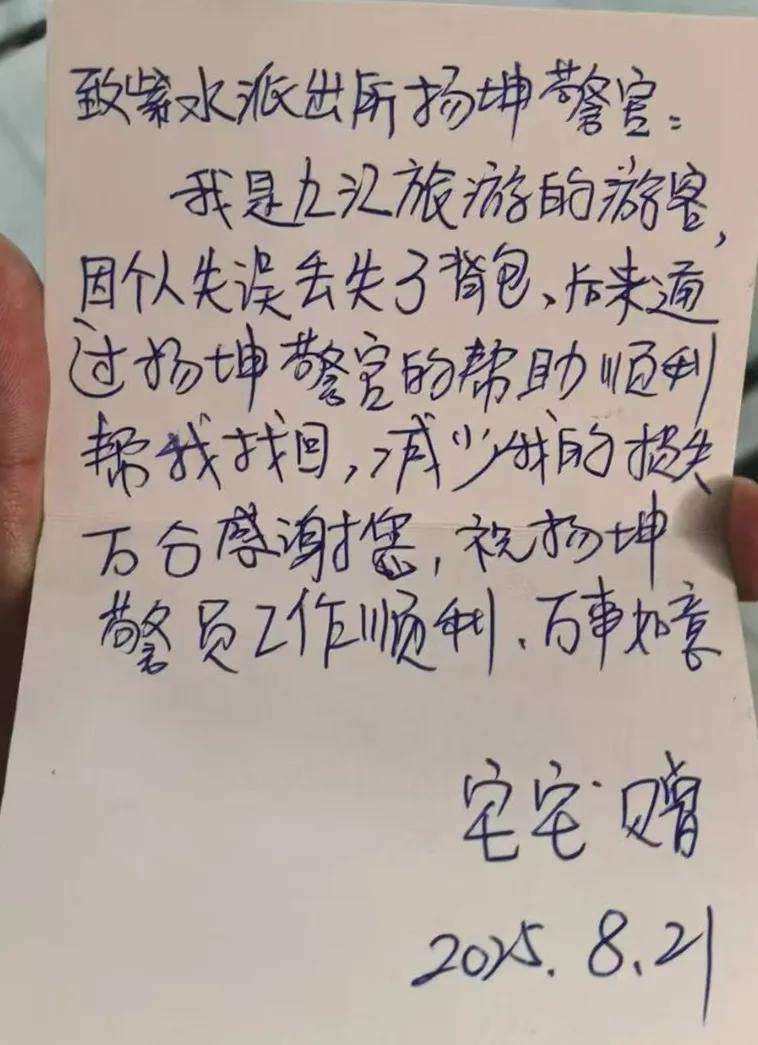 致紫水派出所扬坤警官:
我是九江旅游的游客,
因个人失误丢失了背包、后来通
过扬坤警官的帮助顺利
帮我找回,减少我的损失
万分感谢您,祝扬坤
警员工作顺利、万事如意
宅宅 赠
2025.8.21